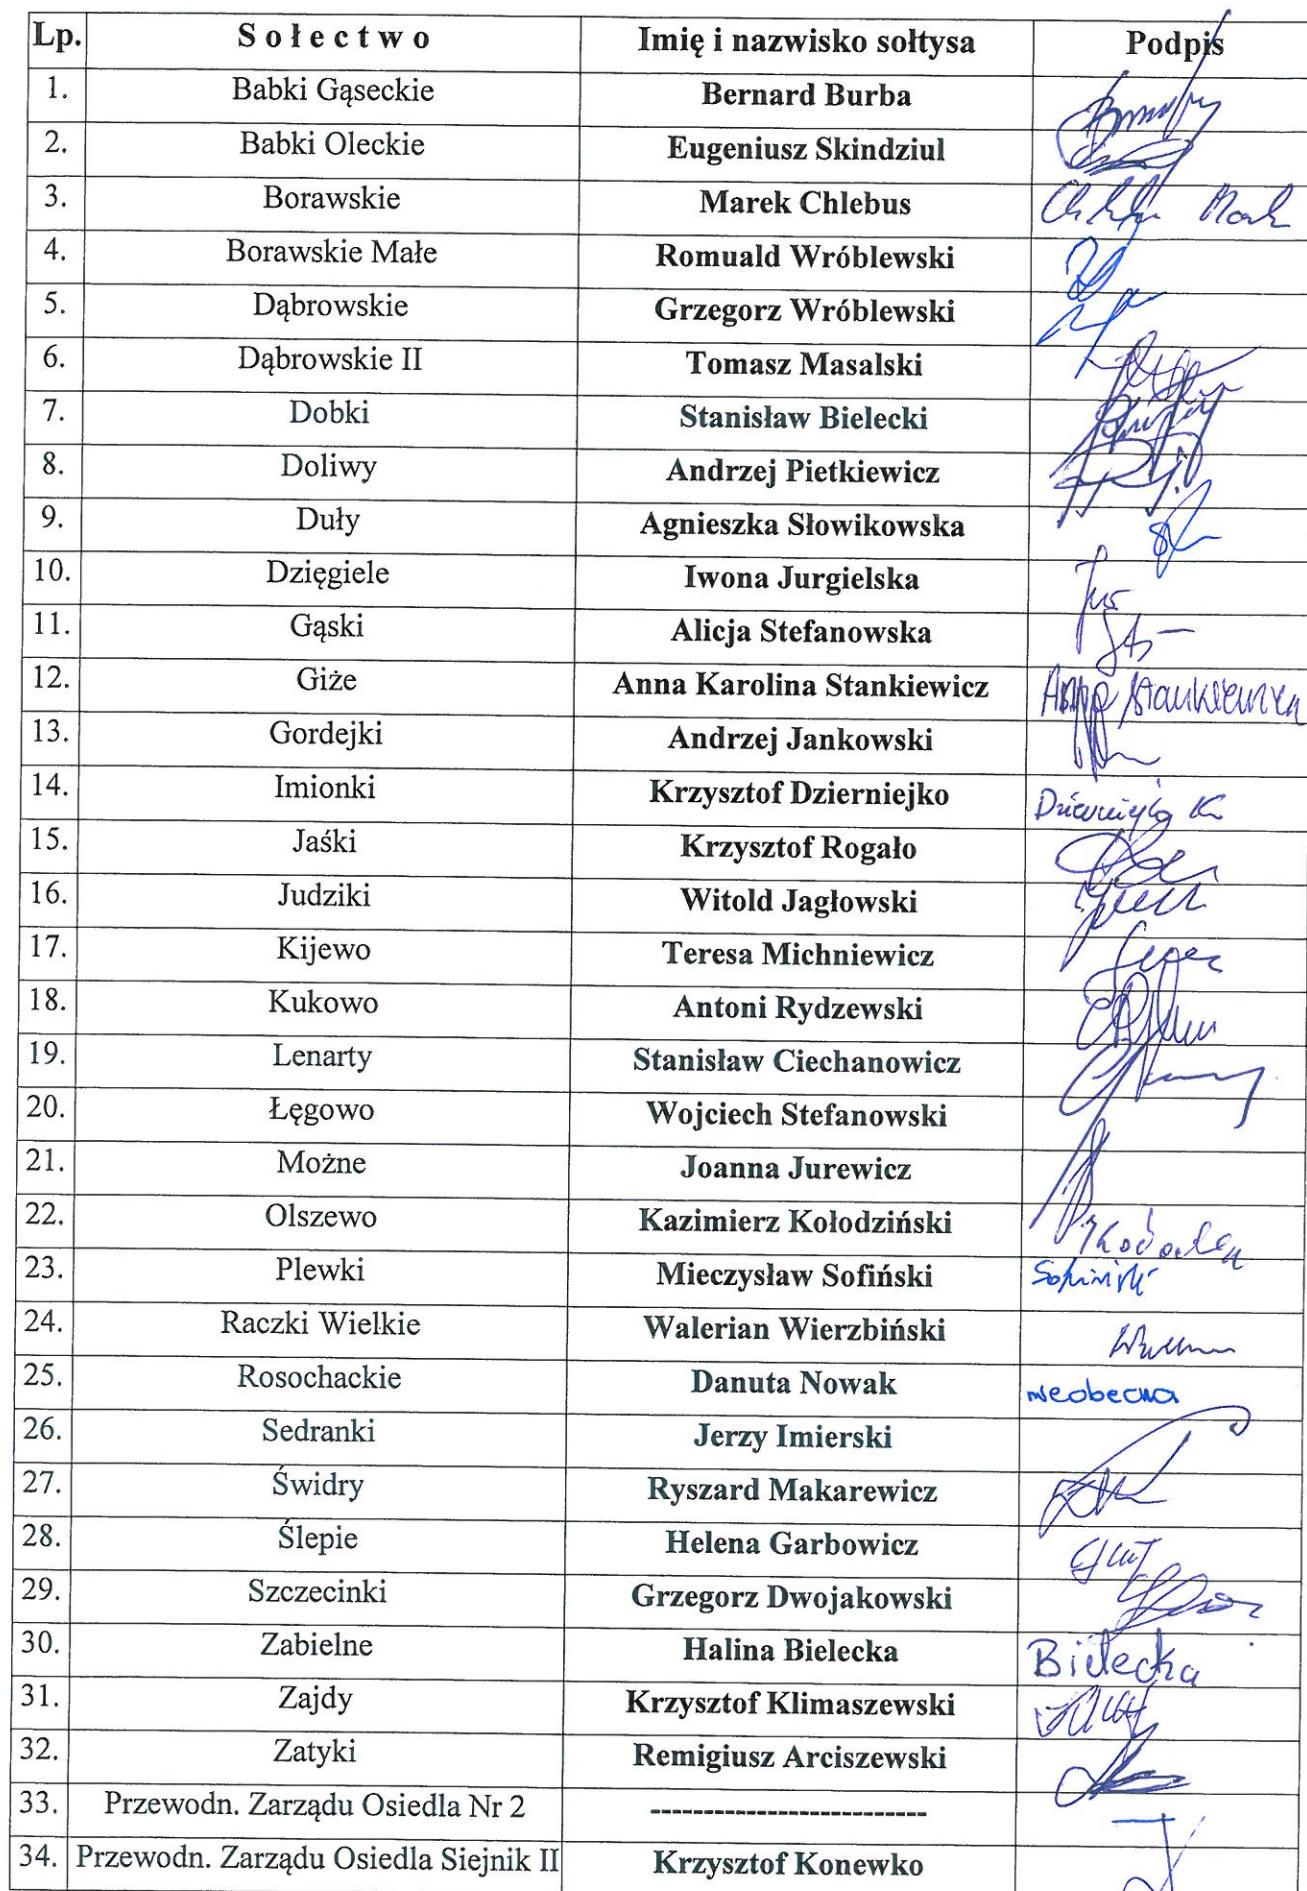 Lp. Sołectwo Imię i nazwisko sołtysa Podpis
1. Babki Gąseckie Bernard Burba
2. Babki Oleckie Eugeniusz Skindziul
3. Borawskie Marek Chlebus
4. Borawskie Małe Romuald Wróblewski
5. Dąbrowskie Grzegorz Wróblewski
6. Dąbrowskie II Tomasz Masalski
7. Dobki Stanisław Bielecki
8. Doliwy Andrzej Pietkiewicz
9. Duły Agnieszka Słowikowska
10. Dzięgiele Iwona Jurgielska
11. Gąski Alicja Stefanowska
12. Giże Anna Karolina Stankiewicz
13. Gordejki Andrzej Jankowski
14. Imionki Krzysztof Dzierniejko
15. Jaśki Krzysztof Rogało
16. Judziki Witold Jagłowski
17. Kijewo Teresa Michniewicz
18. Kukowo Antoni Rydzewski
19. Lenarty Stanisław Ciechanowicz
20. Łęgowo Wojciech Stefanowski
21. Możne Joanna Jurewicz
22. Olszewo Kazimierz Kołodziński
23. Plewki Mieczysław Sofiński
24. Raczki Wielkie Walerian Wierzbiński
25. Rosochackie Danuta Nowak nieobecna
26. Sedranki Jerzy Imierski
27. Świdry Ryszard Makarewicz
28. Ślepie Helena Garbowicz
29. Szczecinki Grzegorz Dwojakowski
30. Zabielne Halina Bielecka Bielecka
31. Zajdy Krzysztof Klimaszewski
32. Zatyki Remigiusz Arciszewski
33. Przewodn. Zarządu Osiedla Nr 2 --------------------------
34. Przewodn. Zarządu Osiedla Siejnik II Krzysztof Konewko